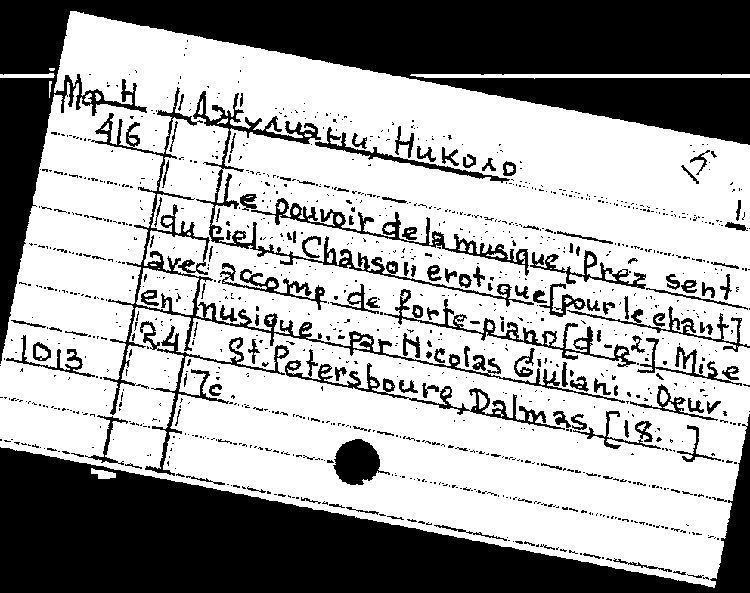 Мф Н
416
Джулиани, Николо
Le pouvoir de la musique, "Préz sent
du ciel,.." Chanson erotique [pour le chant]
avec accomp. de forte-piano [d'-g²]. Mise
en musique... par Nicolas Giuliani... Oeuv.
24
St. Petersbourg, Dalmas, [18..]
7c.
1013